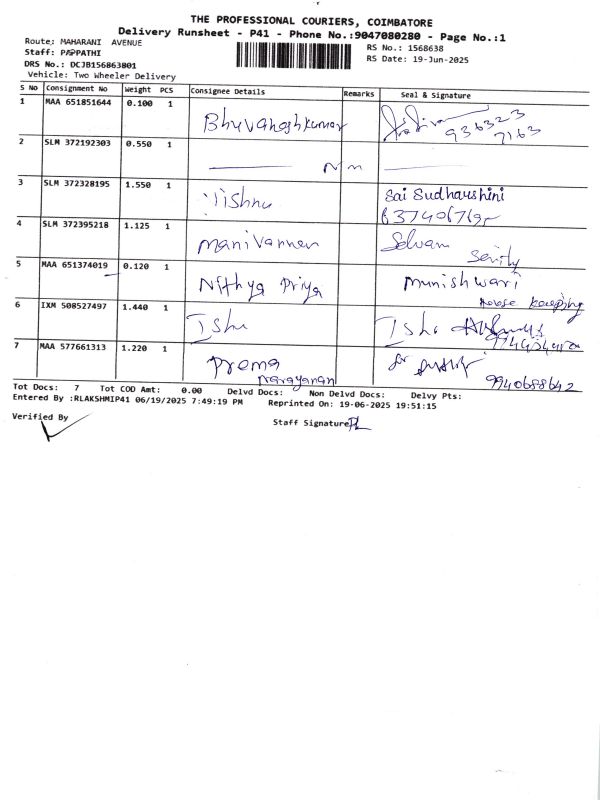 THE PROFESSIONAL COURIERS, COIMBATORE
Delivery Runsheet - P41 - Phone No.:9047080280 - Page No.:1
Route: MAHARANI AVENUE
RS No.: 1568638
Staff: PAPPATHI
RS Date: 19-Jun-2025
DRS No.: DCJB156863801
Vehicle: Two Wheeler Delivery
S No Consignment No Weight PCS Consignee Details Remarks Seal & Signature
1 MAA 651851644 0.100 1 Bhuvaneshkumar
936323
7163
2 SLM 372192303 0.550 1
3 SLM 372328195 1.550 1 Sai Sudharshini
4 SLM 372395218 1.125 1 Manivannan Selvam
5 MAA 651374019 0.120 1 Nithya Priya Munishwari
House keeping
6 IXM 508527497 1.440 1 Isha Isha
7 MAA 577661313 1.220 1 Prema
Narayanan 9940688642
Tot Docs: 7 Tot COD Amt: 0.00 Delvd Docs: Non Delvd Docs: Delvy Pts:
Entered By :RLAKSHMIP41 06/19/2025 7:49:19 PM Reprinted On: 19-06-2025 19:51:15
Verified By
Staff Signature